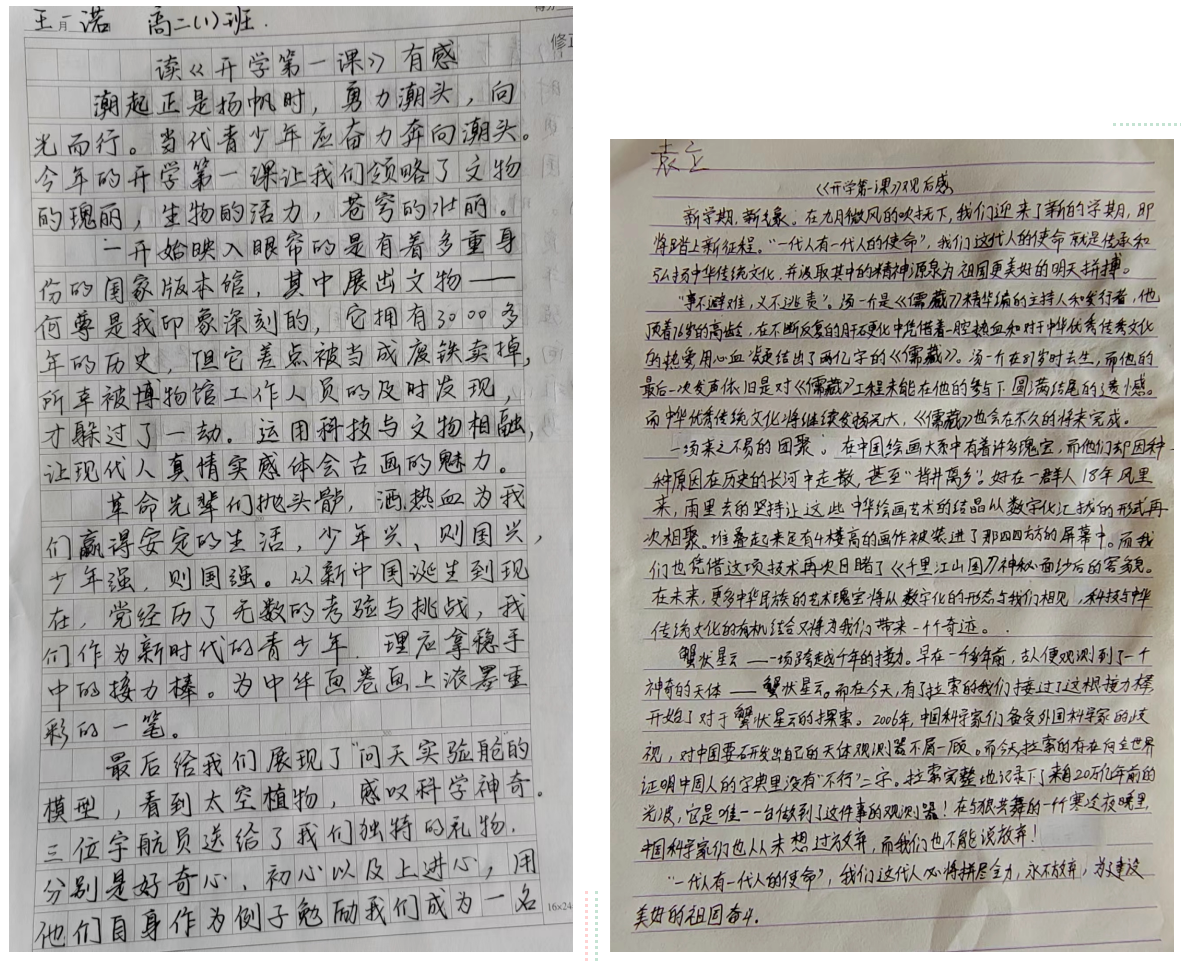 王月诺 高二(1)班.
读《开学第一课》有感
潮起正是扬帆时，勇力潮头，向
光而行。当代青少年应奋力奔向潮头。
今年的开学第一课让我们领略了文物
的瑰丽，生物的活力，苍穹的壮丽。
一开始映入眼帘的是有着多重身
份的国家版本馆，其中展出文物——
何尊是我印象深刻的，它拥有3000多
年的历史，但它差点被当成废铁卖掉，
所幸被博物馆工作人员的及时发现，
才躲过了一劫。运用科技与文物相融，
让现代人真情实感体会古画的魅力。
革命先辈们抛头骷，洒热血为我
们赢得安定的生活，少年兴，则国兴，
少年强，则国强。从新中国诞生到现
在，党经历了无数的考验与挑战，我
们作为新时代的青少年，理应拿稳手
中的接力棒。为中华画卷画上浓墨重
彩的一笔。
最后给我们展现了"问天实验舱"的
模型，看到太空植物，感叹科学神奇。
三位宇航员送给了我们独特的礼物，
分别是好奇心、初心以及上进心，用
他们自身作为例子勉励我们成为一名
16×24
袁立
《开学第一课》观后感
新学期，新气象。在九月微风的吹抚下，我们迎来了新的学期，即
将踏上新征程。"一代人有一代人的使命"，我们这代人的使命就是传承和
弘扬中华传统文化，并汲取其中的精神源泉为祖国更美好的明天拼搏。
"事不避难，义不逃责"。汤一介是《儒藏》精华编的主持人和发行者，他
顶着76岁的高龄，在不断反复的研硬化中凭借着一腔热血和对于中华优秀传秀文化
的热爱用心血凝结出了两亿字的《儒藏》。汤一介在87岁时去生，而他的
最后一次发声依旧是对《儒藏》工程未能在他的参与下圆满结尾的遗憾。
而中华优秀传统文化将继续发扬光大，《儒藏》也会在不久的将来完成。
一场来之不易的团聚；在中国绘画大系中有着许多瑰宝，而他们却因种
种原因在历史的长河中走散，甚至"背井离乡"。好在一群人18年风里
来，雨里去的坚持让这些中华绘画艺术的结晶以数字化汇找的形式再
次相聚。堆叠起来足有4楼高的画作被装进了那四四方方的屏幕中。而我
们也凭借这项技术再次目睹了《千里江山图》神秘面纱后的容貌。
在未来，更多中华民族的艺术瑰宝将以数字化的形态与我们相见，科技与中华
传统文化的有机结合又将为我们带来一个奇迹。
蟹状星云——一场跨越千年的接力。早在一千多年前，古人便观测到了一个
神奇的天体——蟹状星云。而在今天，有了拉索的我们接过了这根接力棒
开始了对于蟹状星云的探索。2006年，中国科学家们备受外国科学家的歧
视，对中国要研发出自己的天体观测器不屑一顾。而今天拉索的存在向全世界
证明中国人的字典里没有"不行"二字。拉索完整地记录下了来自20万亿年前的
光波，它是唯一一台做到了这件事的观测器！在与狼共舞的一个寒这夜晚里，
中国科学家们也从未想过放弃，而我们也不能说放弃！
"一代人有一代人的使命"，我们这代人必将拼尽全力，永不放弃，为建设
美好的祖国奋斗.